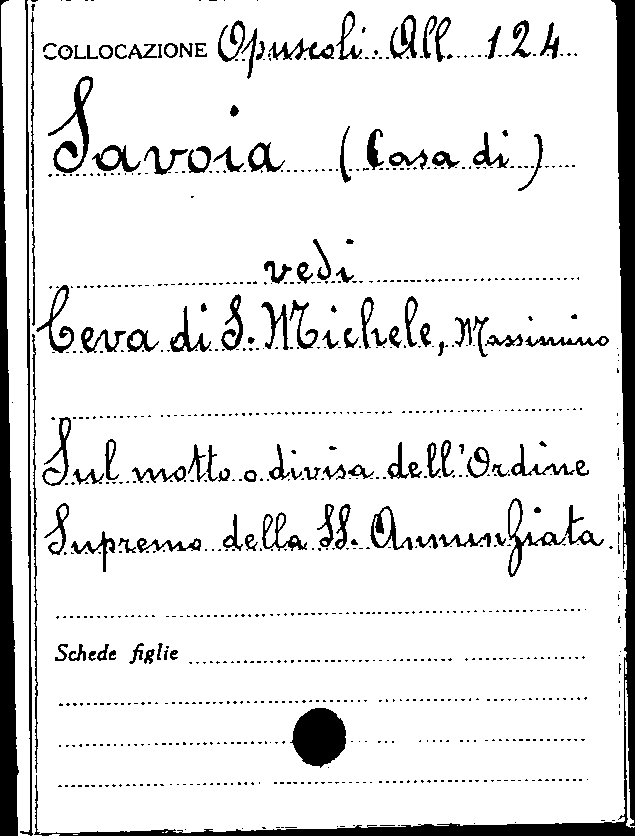 COLLOCAZIONE Opuscoli. All. 124
Savoia (Casa di)
vedi
Ceva di S. Michele, Massimino
Sul motto o divisa dell'Ordine
Supremo della SS. Annunziata.
Schede figlie